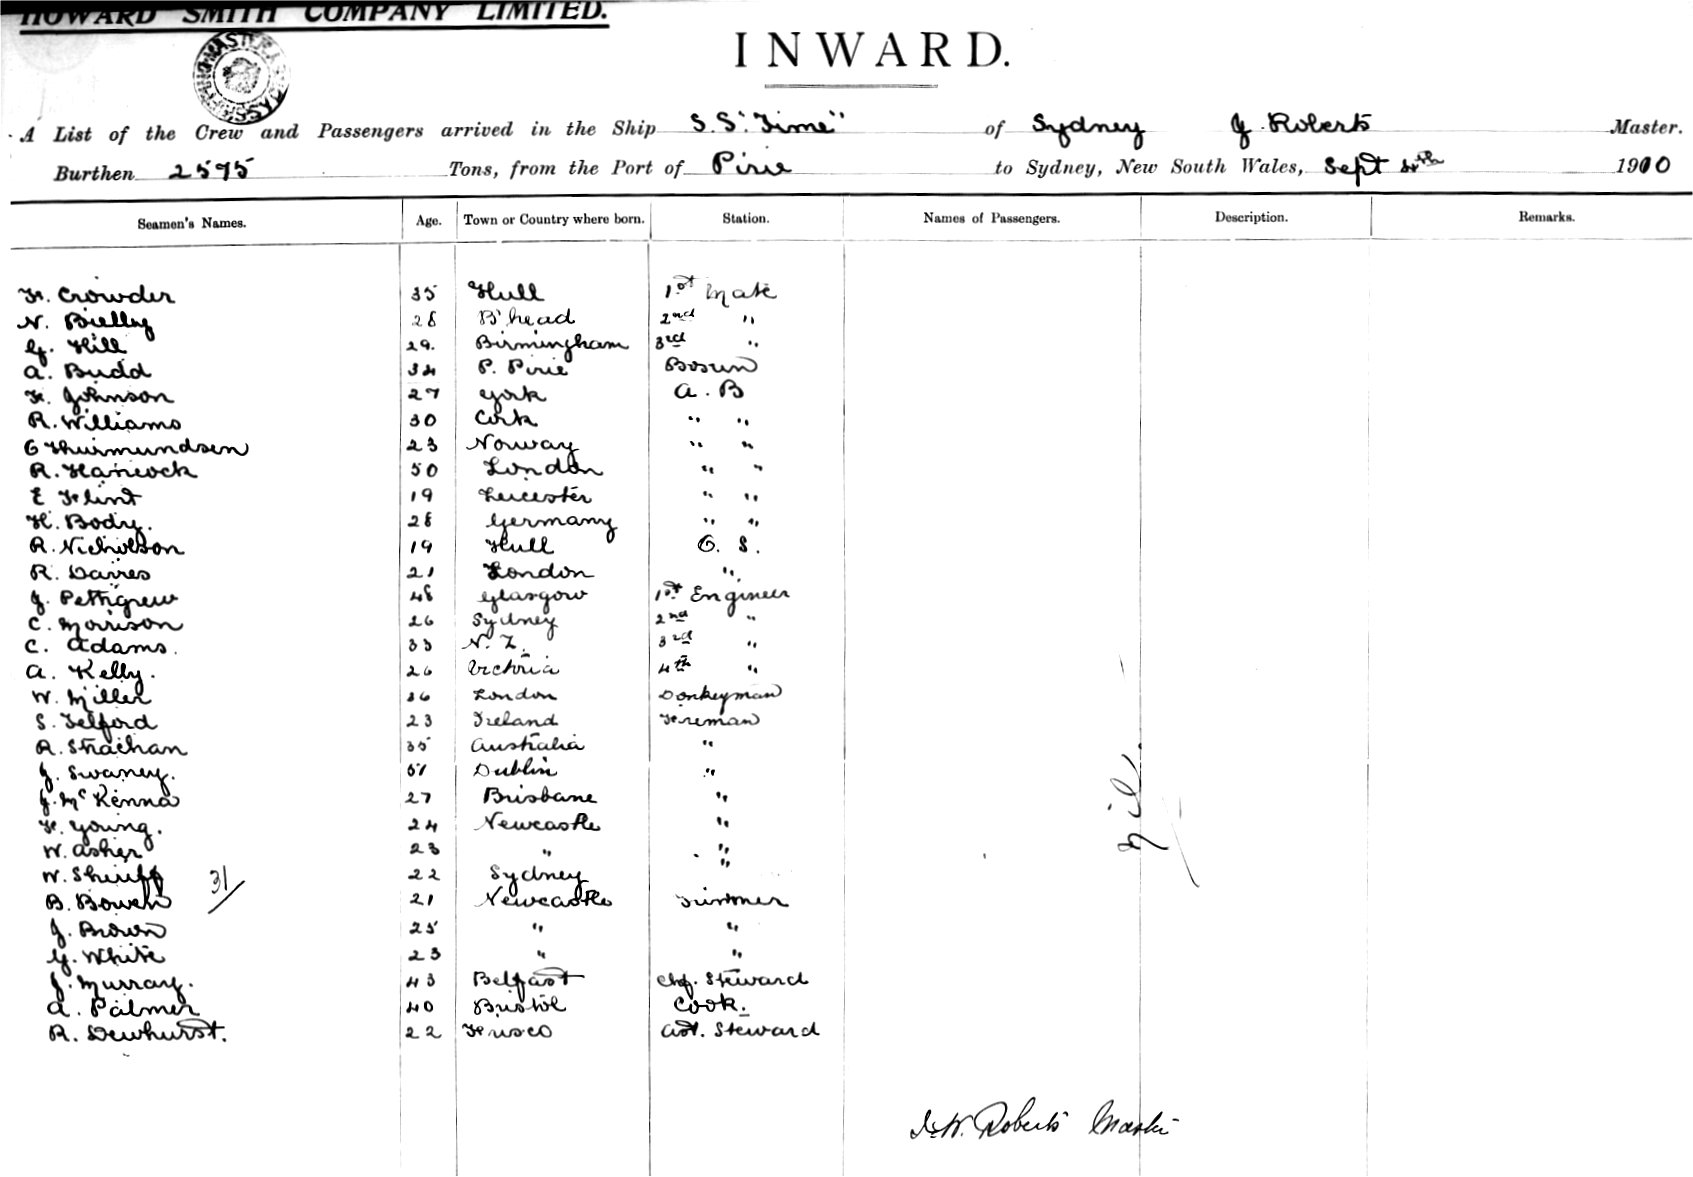 HOWARD SMITH COMPANY LIMITED.
INWARD.
A List of the Crew and Passengers arrived in the Ship S.S. "Time" of Sydney J. Roberts Master.
Burthen 2575 Tons, from the Port of Pirie to Sydney, New South Wales, Sept 4th 1910
Seamen's Names. Age. Town or Country where born. Station. Names of Passengers. Description. Remarks.
F. Crowder 35 Hull 1st Mate
N. Bielby 28 B'head 2nd "
G. Hill 29. Birmingham 3rd "
A. Budd 34 P. Pirie Bosun
F. Johnson 27 York A. B
R. Williams 30 Cork " "
O Thurmundsen 23 Norway " "
R. Hancock 50 London " "
E Flint 19 Leicester " "
H. Body. 28 Germany " "
R. Nicholson 19 Hull O. S.
R. Davies 21 London "
J. Pettigrew 48 Glasgow 1st Engineer
C. Morrison 26 Sydney 2nd "
C. Adams. 33 N. Z. 3rd "
A. Kelly. 26 Victoria 4th "
W. Miller 36 London Donkeyman
S. Telford 23 Ireland Fireman
R. Strachan 35 Australia "
J. Swaney. 51 Dublin "
J. McKenna 27 Brisbane "
F. Young. 24 Newcastle "
W. Asher 23 " "
W. Shruff 22 Sydney "
31/
B. Bowen 21 Newcastle Trimmer
J. Brown 25 " "
G. White 23 " "
J. Murray. 43 Belfast Chf. Steward
A. Palmer 40 Bristol Cook.
R. Dewhurst. 22 Frisco Ast. Steward
Nil.
J. W. Roberts Master